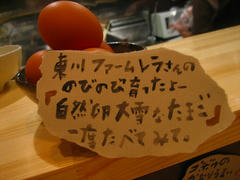 東川ファームレラさんの
のびのび育ったよー
「自然卵大雪なたまご」
一度たべてみて。